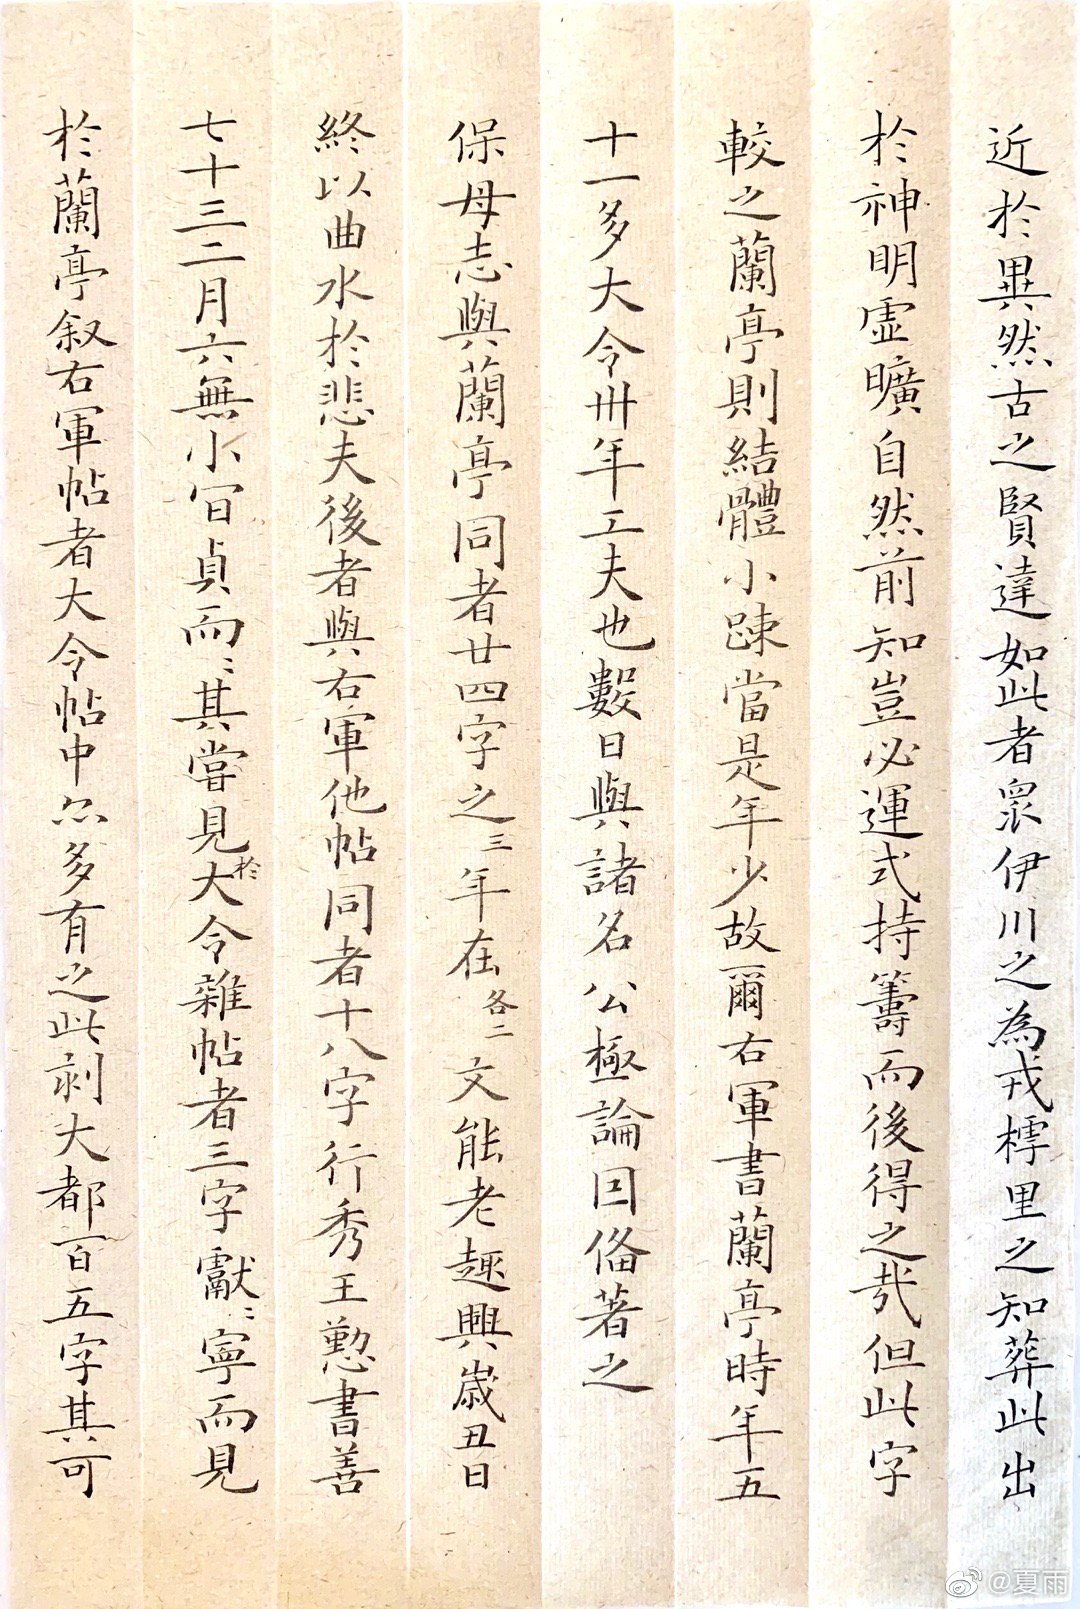 近於異然古之賢達如此者眾伊川之為戎樗里之知葬此出
於神明虛曠自然前知豈必運式持籌而後得之哉但此字
較之蘭亭則結體小踈當是年少故爾右軍書蘭亭時年五
十一多大令卅年工夫也數日與諸名公極論因俻著之
保母志與蘭亭同者廿四字之三年在各二文能老趣興歲丑日
終以曲水於悲夫後者與右軍他帖同者十八字行秀王懃書善
七十三二月六無小官貞而〻其嘗見於大令雜帖者三字獻〻寧而見
於蘭亭叙右軍帖者大令帖中亦多有之此剥大都百五字其可
@夏雨